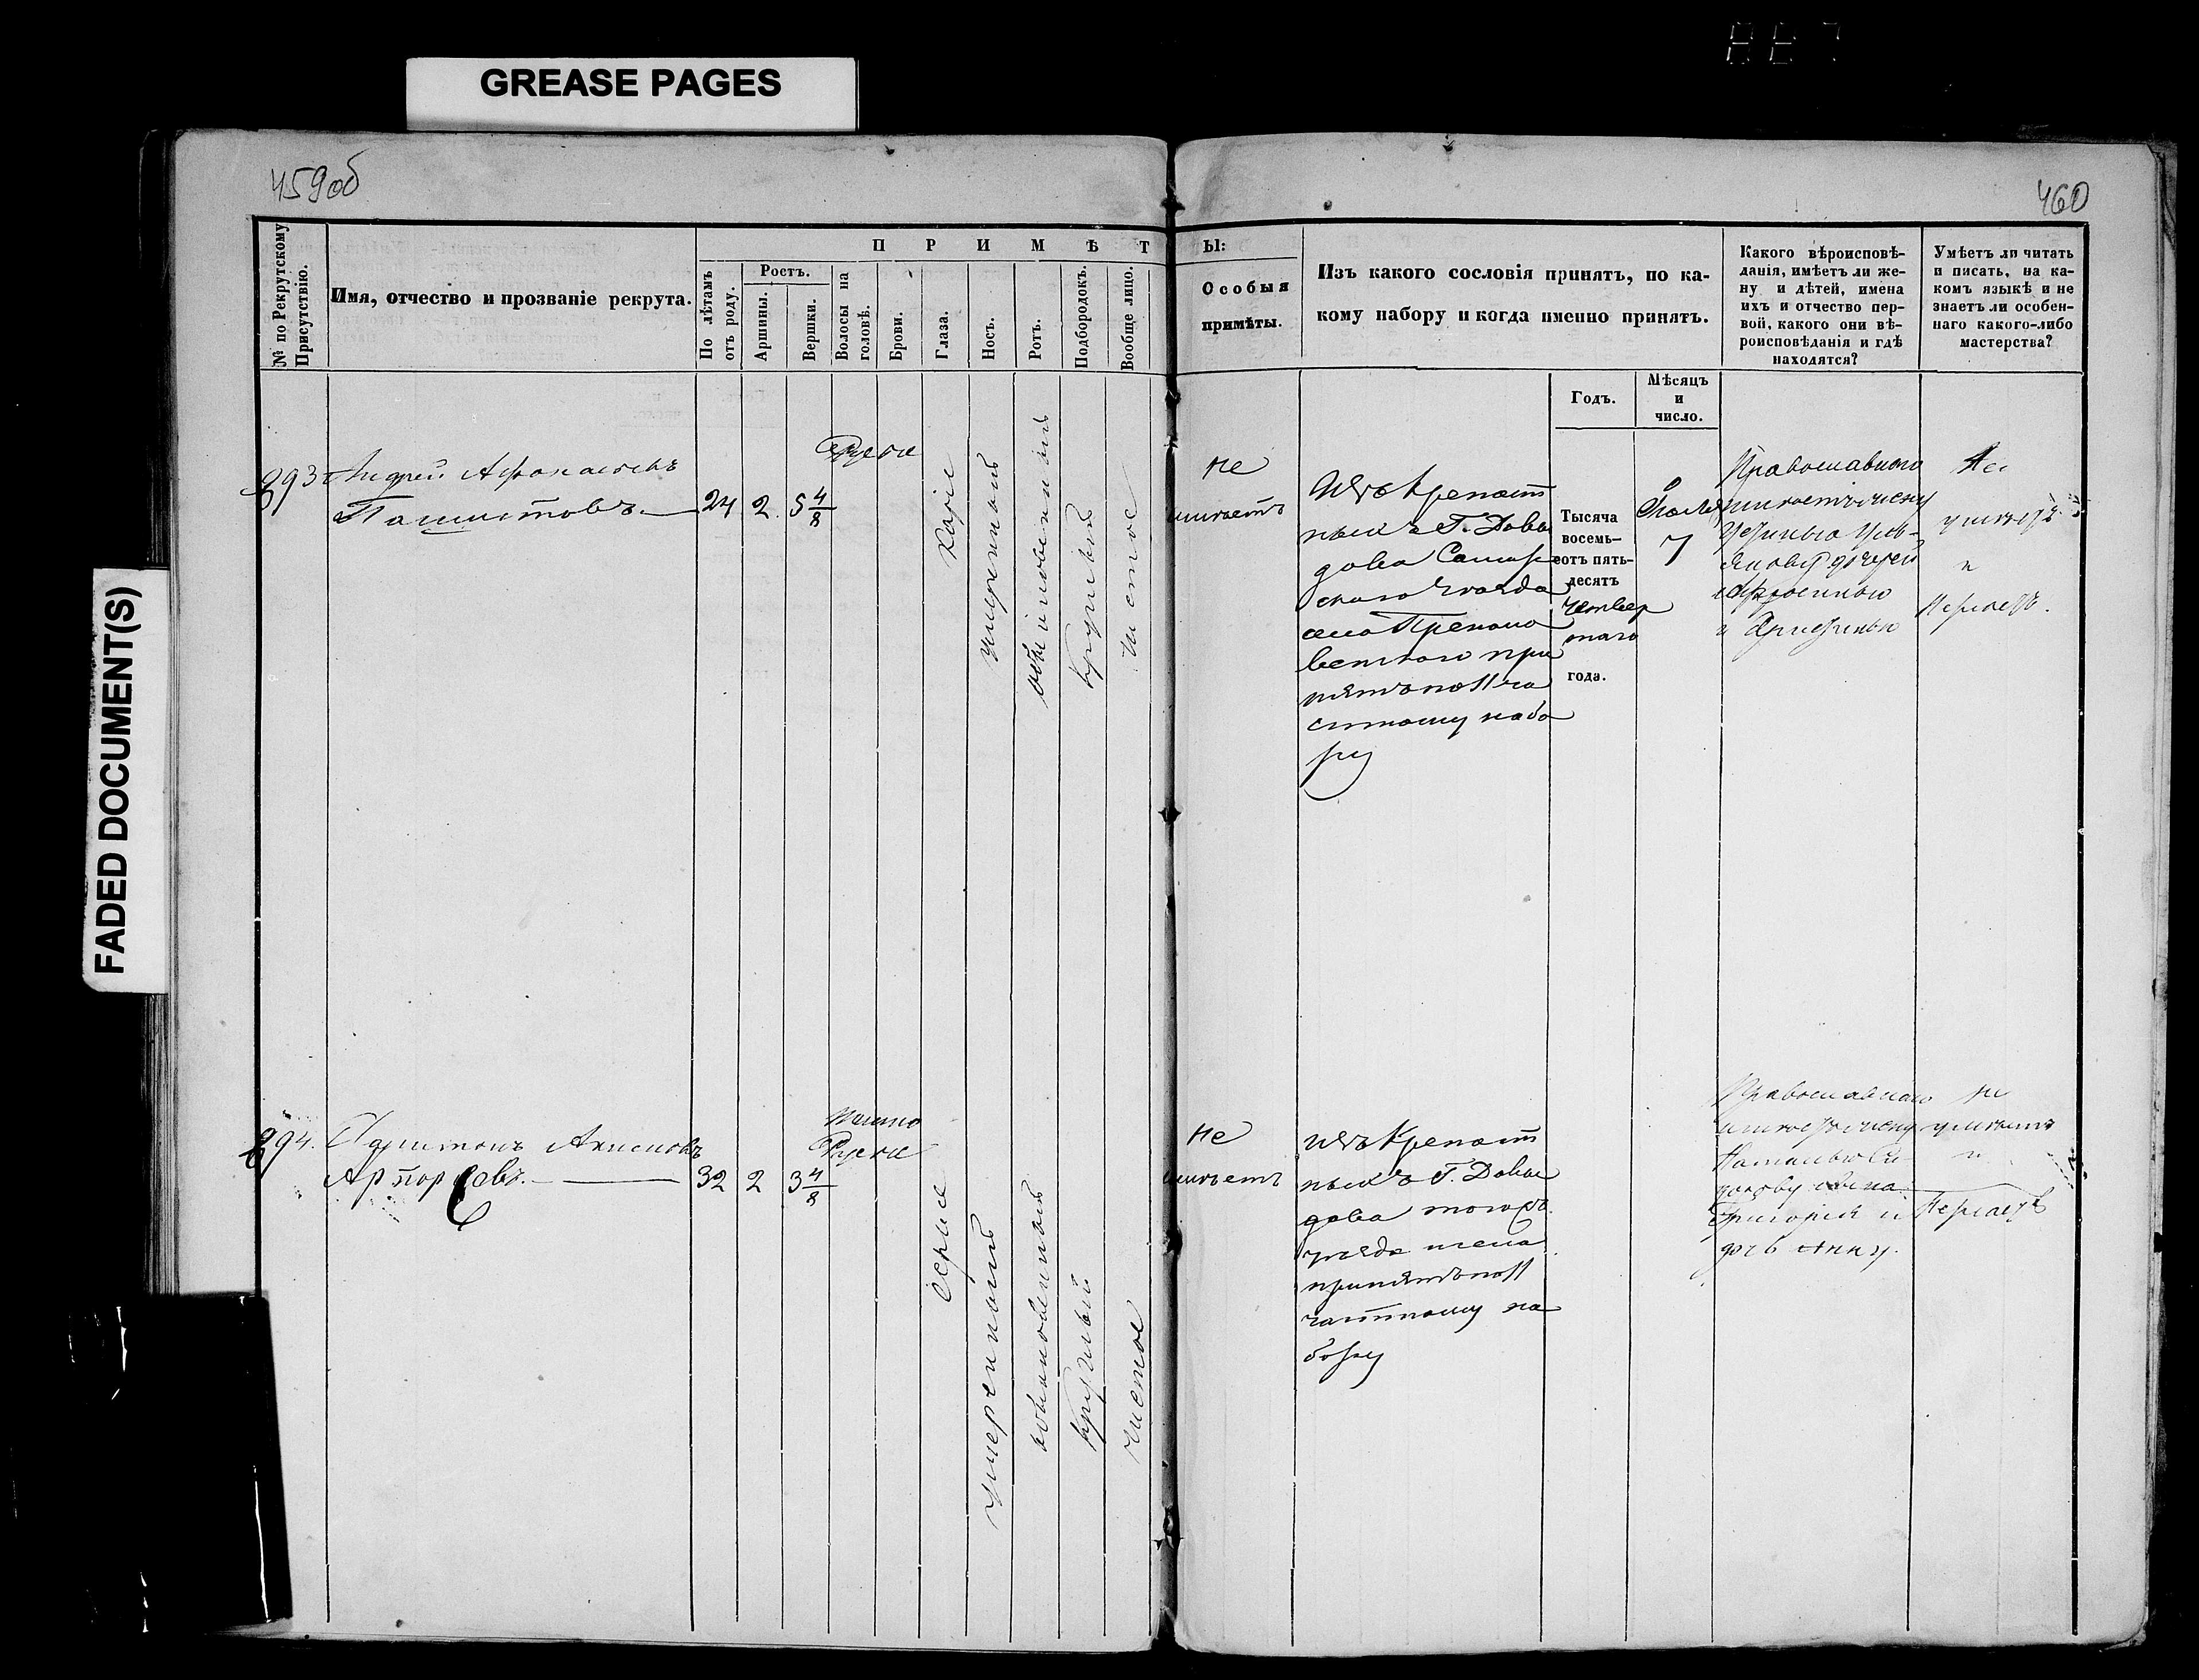 GREASE PAGES
FADED DOCUMENT(S)
459об
460
№ по Рекрутскому
Присутствію.
Имя, отчество и прозваніе рекрута.
П Р И М Ѣ Т
По лѣтамъ
отъ роду.
Ростъ.
Аршины.
Вершки.
Волосы на
головѣ.
Брови.
Глаза.
Носъ.
Ротъ.
Подбородокъ.
Вообще лицо.
Ы:
Особыя
примѣты.
Изъ какого сословія принятъ, по ка-
кому набору и когда именно принятъ.
Годъ.
Мѣсяцъ
и
число.
Какого вѣроисповѣ-
данія, имѣетъ ли же-
ну и дѣтей, имена
ихъ и отчество пер-
вой, какого они вѣ-
роисповѣданія и гдѣ
находятся?
Умѣетъ ли читать
и писать, на ка-
комъ языкѣ и не
знаетъ ли особен-
наго какого-либо
мастерства?
893
Андрей Афонасьевъ
24
2
5 4/8
Русые
Каріе
умеренный
обыкновенный
круглый
чистое
не
имѣетъ
Изъ крепост
ныхъ Г. Давы
дова Самар
скаго уѣзда
села
принятъ по II ча
стному набо
ру
Тысяча
восемь-
сотъ пять-
десятъ
четвер
таго
года.
7
Православнаго
имѣетъ жену
дочерей
и
Не
умѣетъ
и
894.
Харитонъ
32
2
3 4/8
темно
Русые
Серые
умеренный
обыкновенный
круглый
чистое
не
имѣетъ
изъ Крепост
ныхъ Г. Давы
дова тогожъ
уѣзда села
принятъ по II
частному на
бору
Православнаго
имѣетъ жену
Наталью
сына
Григорія и
дочь Анну.
не
умѣетъ
и